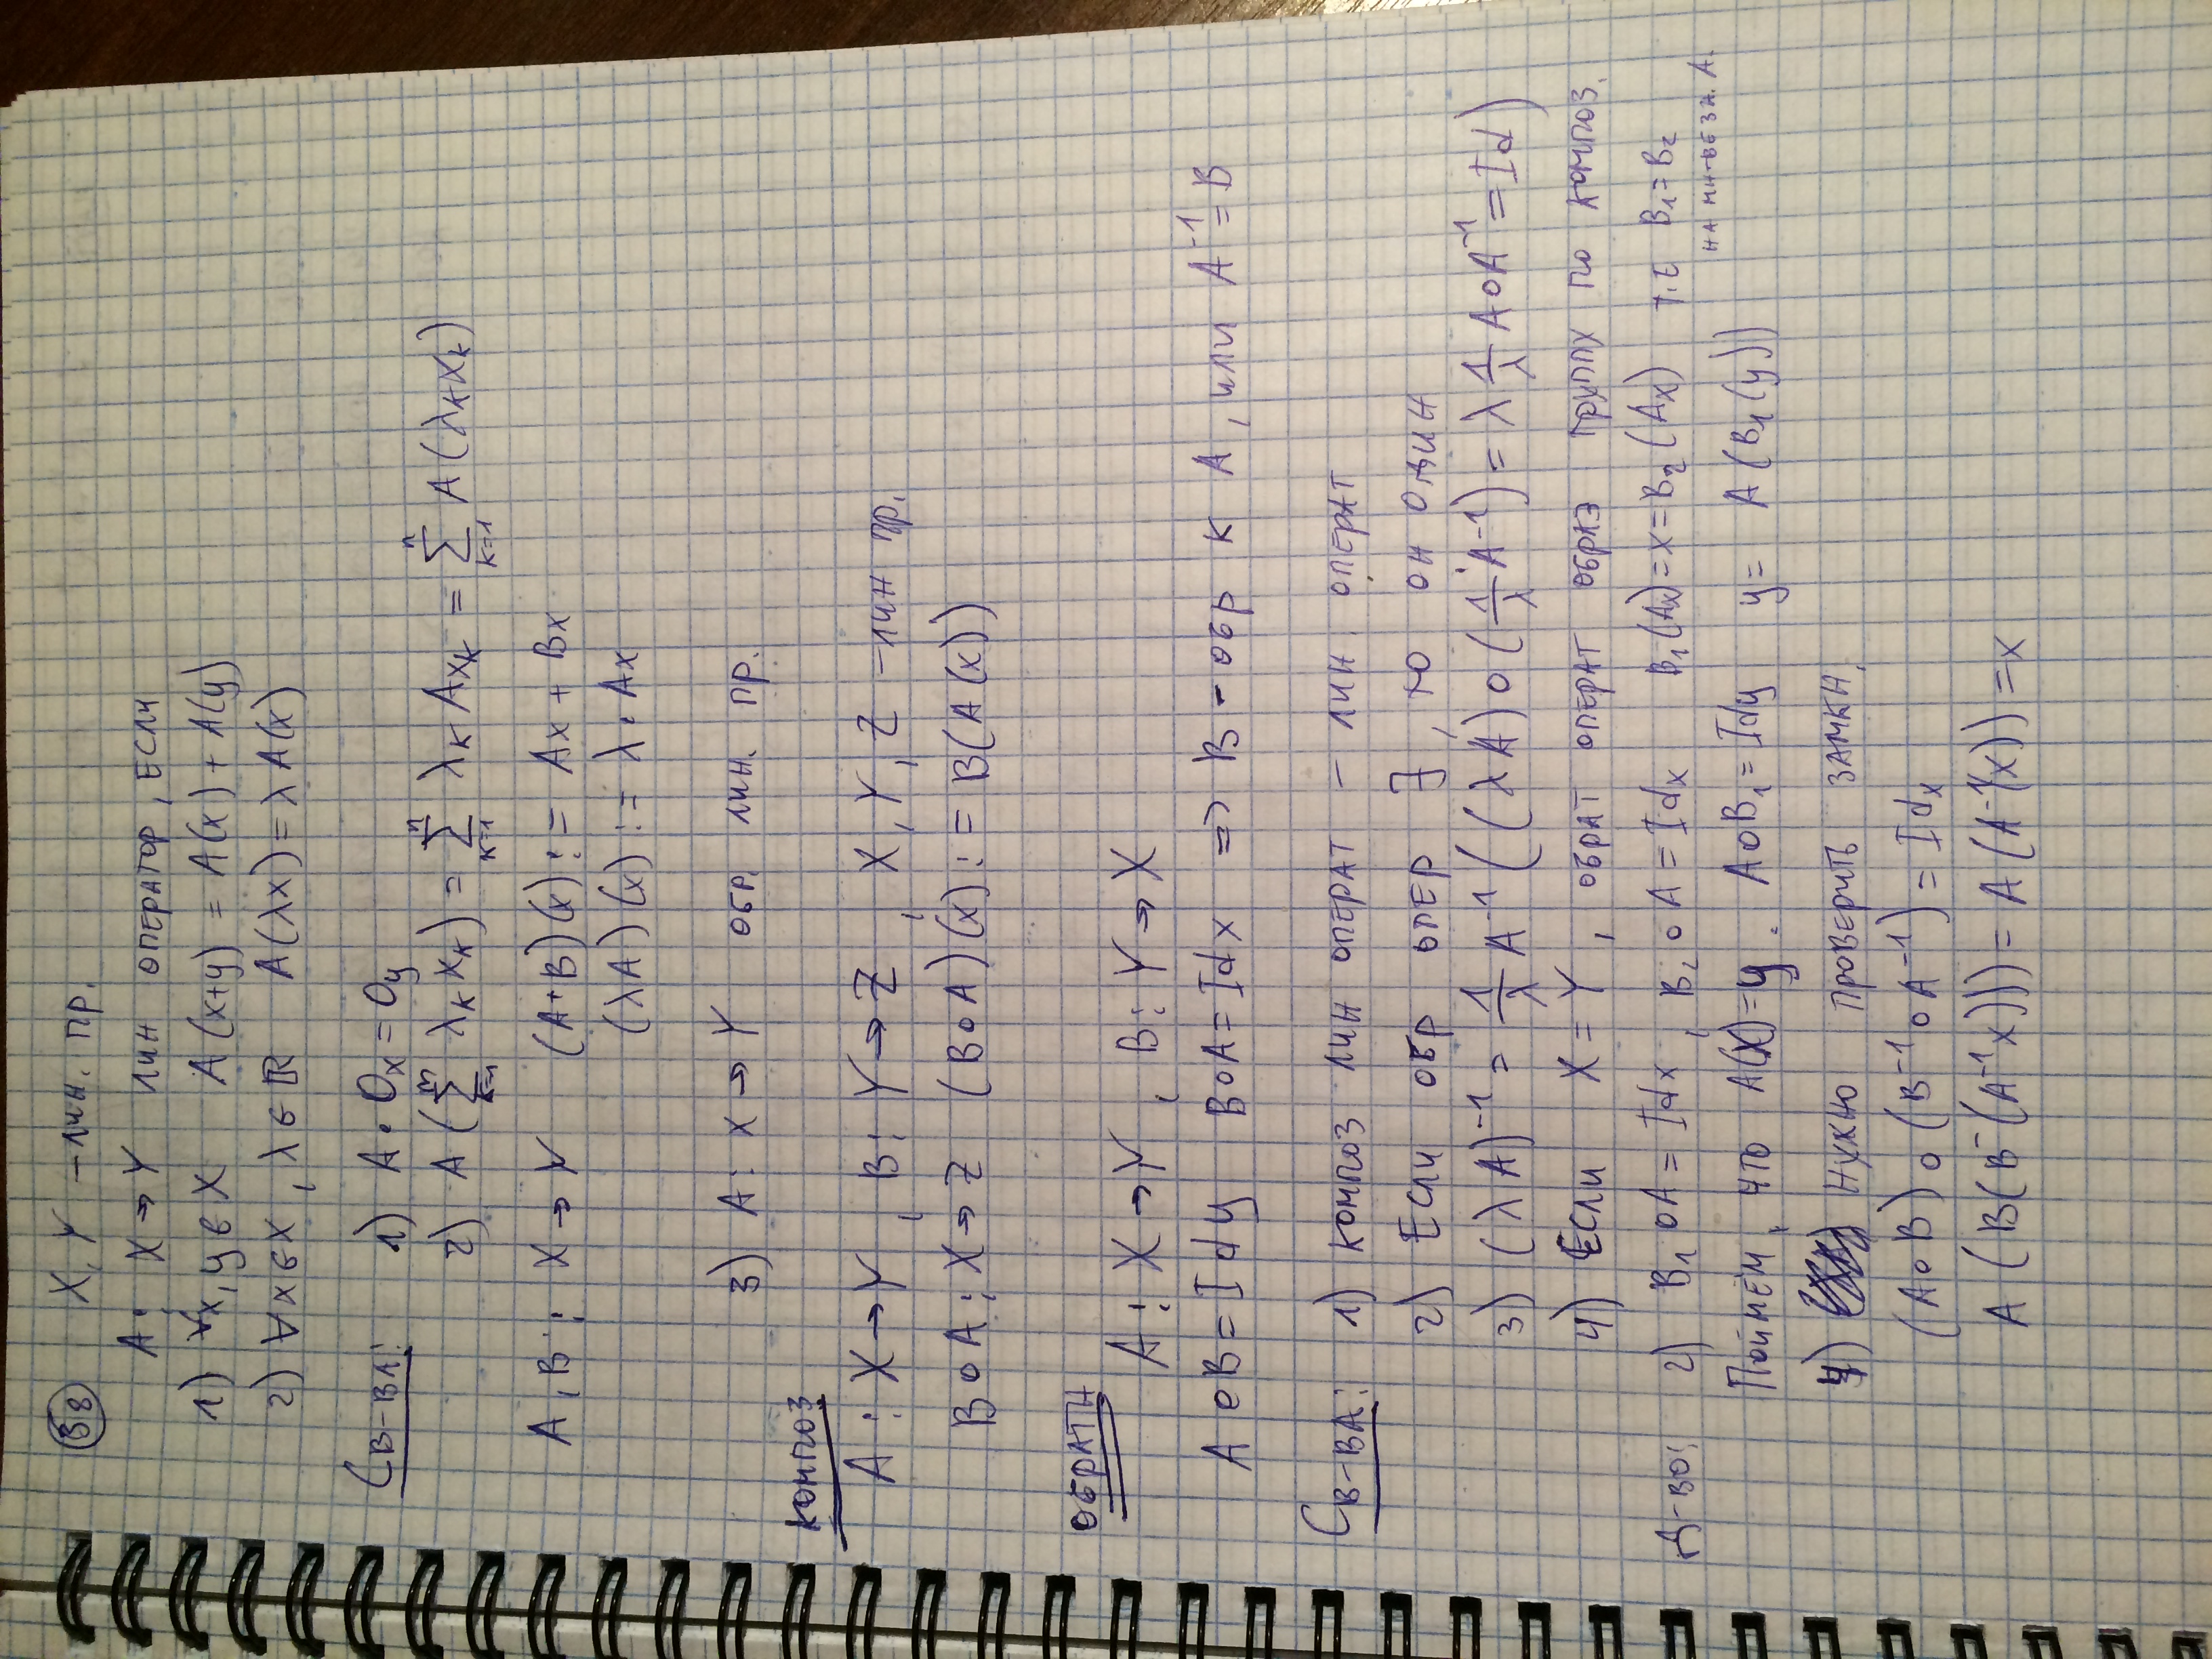 38 X, Y – лин. пр.
A: X → Y лин оператор, если
1) ∀x, y ∈ X A(x+y) = A(x) + A(y)
2) ∀x ∈ X, λ ∈ ℝ A(λx) = λA(x)
Св-ва: 1) A · 0x = 0y
2) A(∑_{k=1}^{n} λk xk) = ∑_{k=1}^{n} λk Axk = ∑_{k=1}^{n} A(λk xk)
A, B: X → Y (A+B)(x) := Ax + Bx
(λA)(x) := λ · Ax
3) A: X → Y обр. лин. пр.
Композ
A: X → Y, B: Y → Z, X, Y, Z – лин пр.
B∘A: X → Z (B∘A)(x) := B(A(x))
Обратн
A: X → Y, B: Y → X
A∘B = Idy B∘A = Idx => B – обр к A, или A⁻¹ = B
Св-ва: 1) композ лин операт – лин. операт
2) Если обр опер ∃, то он один
3) (λA)⁻¹ = 1/λ A⁻¹ ((λA)∘(1/λ A⁻¹) = λ 1/λ A∘A⁻¹ = Id)
4) Если X = Y, обрат операт образ группу по композ.
Д-во: 2) B₁∘A = Idx, B₂∘A = Idx B₁(Ax) = x = B₂(Ax) т.е B₁ = B₂
на мн-ве зн. A.
Поймём, что A(X) = y. A∘B₁ = Idy y = A(B₁(y))
4) нужно проверить замкн.
(A∘B)∘(B⁻¹∘A⁻¹) = Idx
A(B(B⁻(A⁻¹x))) = A(A⁻¹(x)) = x